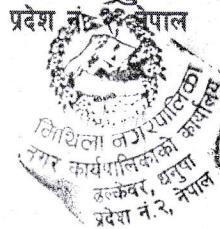 प्रदेश नं. २ नेपाल
मिथिला नगरपालिका
नगर कार्यपालिकाको कार्यालय
ढल्केवर, धनुषा
प्रदेश नं.२, नेपाल